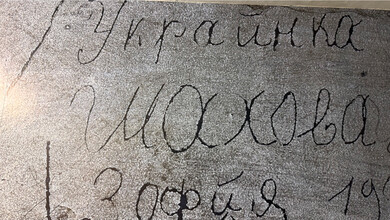 Украинка
Шахова
Зофия 19